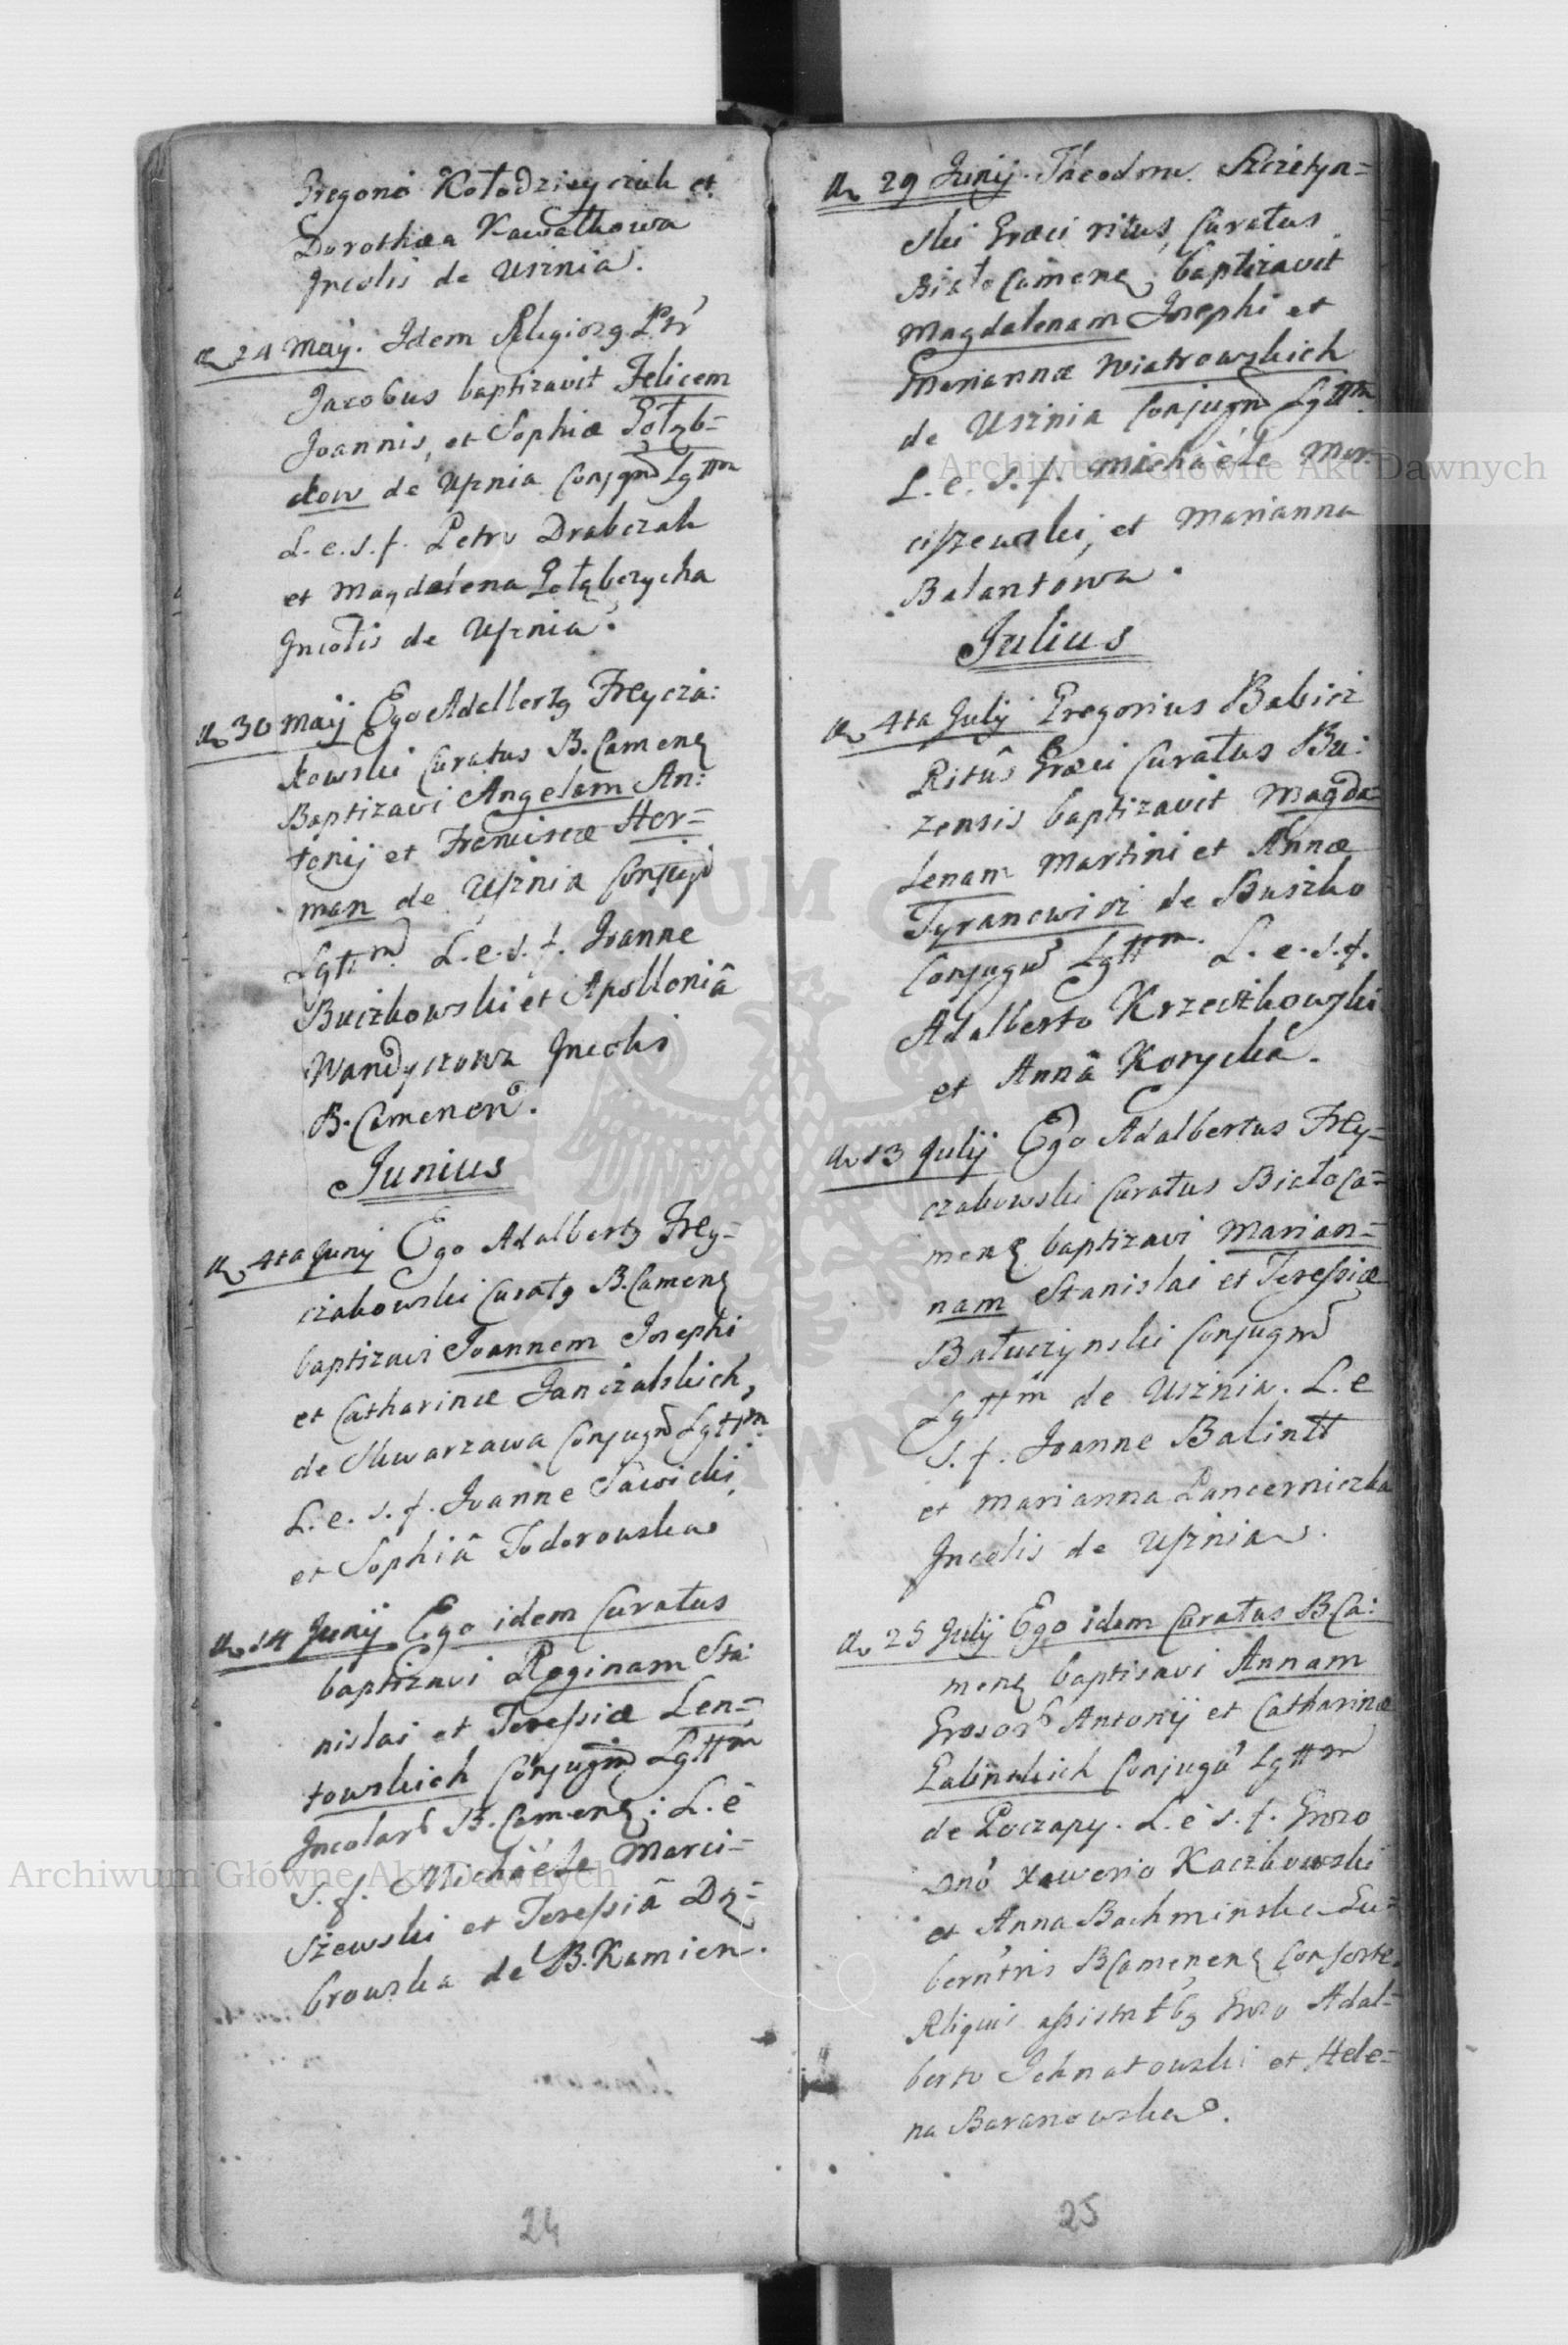 Gregorio Kołodzieyczik et
Dorothæa Kawałkowa
Incolis de Usznia.
24 Maij. Idem Religiosq Ptr
Jacobus baptizavit Felicem
Joannis, et Sophiæ Gołąb-
kow de Uſznia Conjgm Lgttm
L. e. s. f. Petro Drabczak
et Magdalena Gołąbczycha
Incolis de Uſznia.
30 Maij Ego Adalbertq Freycza:
kowski Curatus B. Camenę
Baptizavi Angelam An:
tonij et Franciscæ Her-
man de Uſznia Conjug
Lgttm L. e. s. f. Joanne
Buczkowski et Apolloniâ
Wandyczowa Incolis
B. Camenen.
Junius
4ta Junij Ego Adalbertq Frey-
czakowski Curatq B. Camenę
baptizavi Joannem Josephi
et Catharinæ Janczalskich,
de Skwarzawa Conjugm Lgttm
L. e. s. f. Joanne Sawicki,
et Sophiâ Todorowska
14 Junij Ego idem Curatus
baptizavi Reginam Sta:
nislai et Tereſsiæ Len-
towskich Conjugm Lgttm
Incolar B. Camenę: L. e
s. f. Michaële Marci-
szewski et Tereſsiâ Dą-
browska de B. Kamien.
24
29 Junij. Theodorus Szczetyn-
ski Græci ritus, Curatus
Biało Camenę, baptizavit
Magdalenam Josephi et
Mariannæ Wiatrowskich
de Usznia Conjugm Lgttm
L. e. s. f. Michaële Mar-
ciſzewski, et Marianna
Balantowa.
Julius
4ta Julij Gregorius Babicz
Ritûs Græci Curatus Bu:
zensis baptizavit Magda-
lenam Martini et Annæ
Tyranowicz de Buszko
Conjugm Lgttm. L. e. s. f.
Adalberto Krzeczkowski
et Annâ Korycka.
13 Julij Ego Adalbertus Frey-
czakowski Curatus BiałoCa-
menę baptizavi Marian-
nam Stanislai et Tereſsiæ
Bałuczynski Conjugm
Lgttm de Usznia. L. e
s. f. Joanne Balintt
et Marianna Pancerniczka
Incolis de Uſznia.
25 Julij Ego idem Curatus B Ca:
menę baptisavi Annam
Grosor Antonij et Catharinæ
Galinskich Conjugu Lgttm
de Poczapy. L. e s. f. Groso
Dno Xawerio Kaczkowski
et Anna Bachminska Gu-
berntris BCamenenę Consorte.
Reliquis aſsistntbq Groso Adal-
berto Jchnatowski et Hele-
na Baranowska.
25
Archiwum Główne Akt Dawnych
Archiwum Główne Akt Dawnych